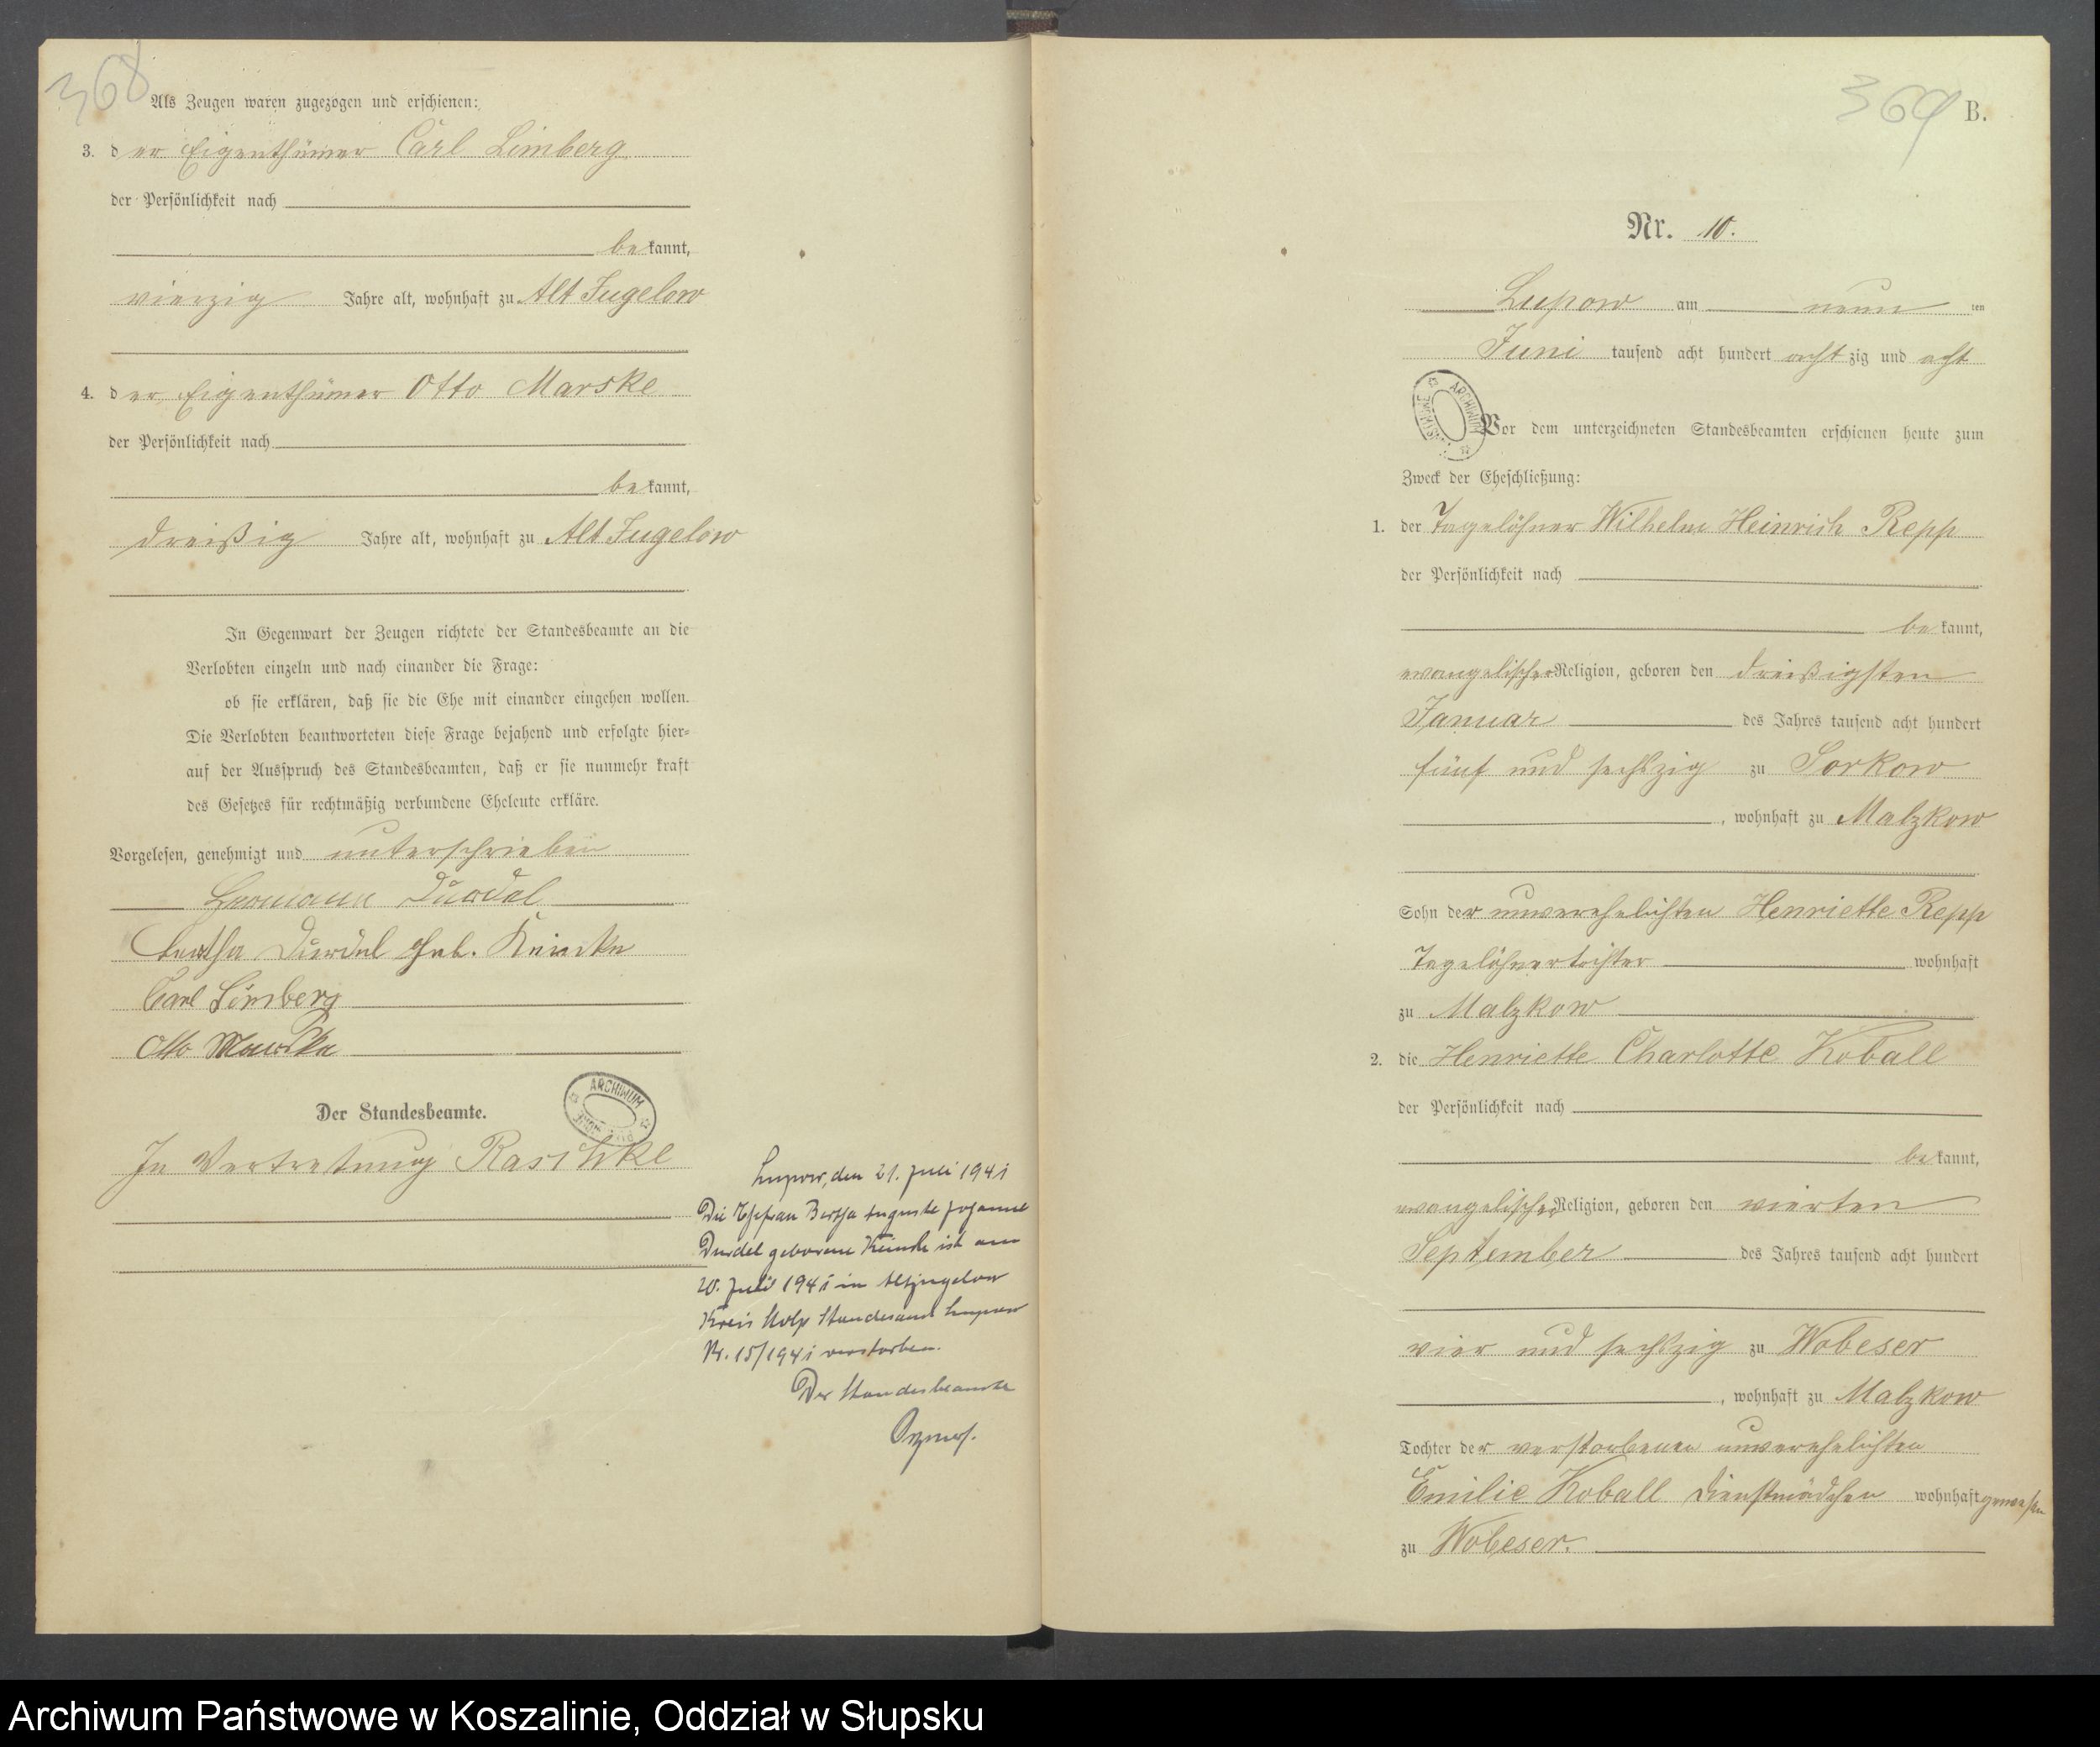 368
Als Zeugen waren zugezogen und erschienen:
3. der Eigenthümer Carl Limberg
der Persönlichkeit nach
bekannt,
vierzig Jahre alt, wohnhaft zu Alt Jugelow
4. der Eigenthümer Otto Marske
der Persönlichkeit nach
bekannt,
dreißig Jahre alt, wohnhaft zu Alt Jugelow
In Gegenwart der Zeugen richtete der Standesbeamte an die
Verlobten einzeln und nach einander die Frage:
ob sie erklären, daß sie die Ehe mit einander eingehen wollen.
Die Verlobten beantworteten diese Frage bejahend und erfolgte hier-
auf der Ausspruch des Standesbeamten, daß er sie nunmehr kraft
des Gesetzes für rechtmäßig verbundene Eheleute erkläre.
Vorgelesen, genehmigt und unterschrieben
Hermann Durdel
Bertha Durdel geb. Reincke
Carl Limberg
Otto Marske
Der Standesbeamte.
ARCHIWUM
In Vertretung Raschke
Lupow, den 21. Juli 1941
Die Ehefrau Bertha Auguste Johanne
Durdel geborene ist am
20. Juli 1941 in Altjugelow
Kreis Stolp Standesamt Lupow
Nr. 15/1941 verstorben.
Der Standesbeamte
369
B.
Nr. 10.
Lupow am neun ten
Juni tausend acht hundert achtzig und acht
ARCHIWUM
Vor dem unterzeichneten Standesbeamten erschienen heute zum
Zweck der Eheschließung:
1. der Tagelöhner Wilhelm Heinrich Repp
der Persönlichkeit nach
bekannt,
evangelischer Religion, geboren den dreißigsten
Januar des Jahres tausend acht hundert
fünf und sechszig zu Sorkow
, wohnhaft zu Malzkow
Sohn der unverehelichten Henriette Repp
Tagelöhnertochter wohnhaft
zu Malzkow
2. die Henriette Charlotte Koball
der Persönlichkeit nach
bekannt,
evangelischer Religion, geboren den vierten
September des Jahres tausend acht hundert
vier und sechszig zu Wobeser
, wohnhaft zu Malzkow
Tochter der verstorbenen unverehelichten
Emilie Koball Dienstmädchen wohnhaft gewesen
zu Wobeser.
Archiwum Państwowe w Koszalinie, Oddział w Słupsku